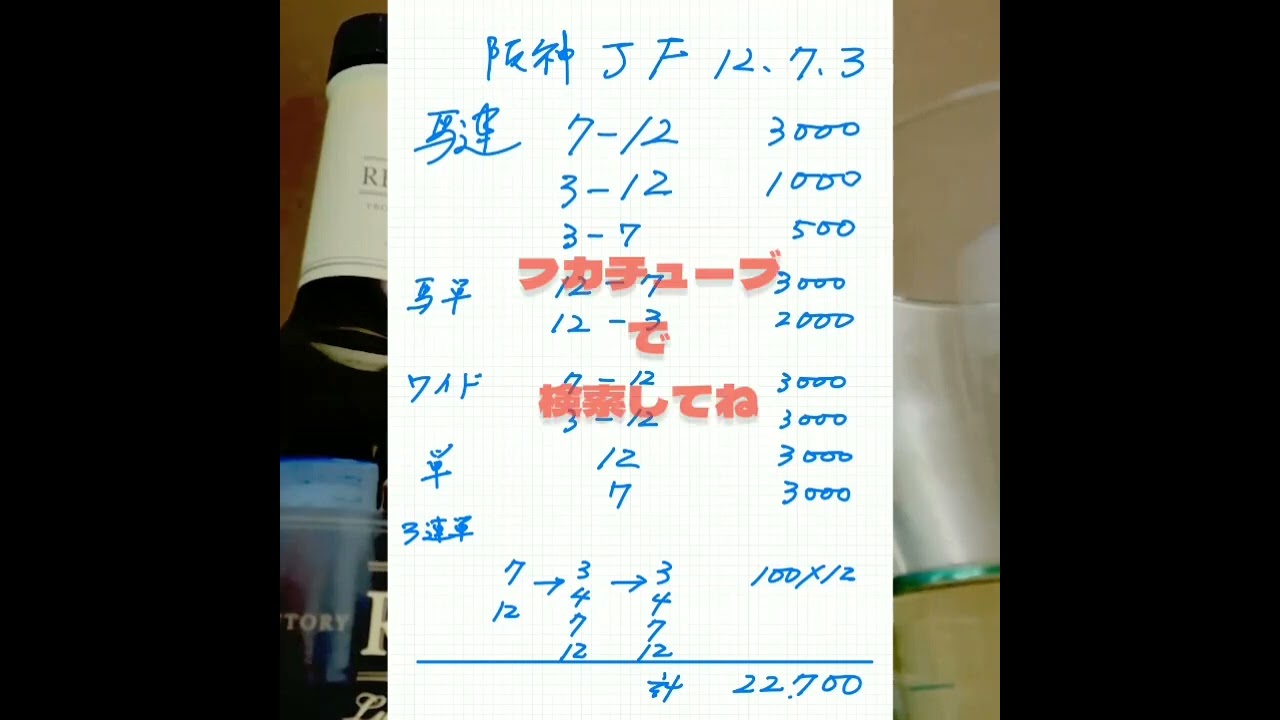 阪神 J F 12、7、3
馬連 7-12 3000
3-12 1000
3-7 500
フカチューブ
馬単 12-7 3000
12-3 2000
で
ワイド 7-12 3000
検索してね
3-12 3000
単 12 3000
7 3000
3連単
7 → 3 → 3 100×12
12 4 4
7 7
12 12
計 22.700
RE
NTORY